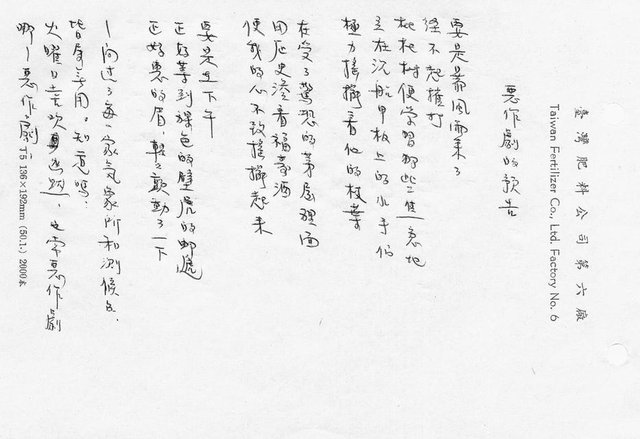 臺灣肥料公司第六廠
Taiwan Fertilizer Co., Ltd. Factory No. 6
惡作劇的預告
要是暴風雨來了
經不起撞打
枇杷樹便學習那些焦急地
立在沉船甲板上的水手們
極力搖擺着他的枝葉
在受了驚恐的茅屋裡面
因歷史滲着福壽酒
使我的心不致搖擺起來
要是在下午
正好等到綠色的壁虎的郵遞
正好 的眉，輕輕顫動了一下
向過了每一家氣象所和測候台.
皆屬無用。知道嗎？
火曜日喜歡 ，也常惡作劇
喲—惡作劇.
T5 136×192mm (50.1.) 2000本